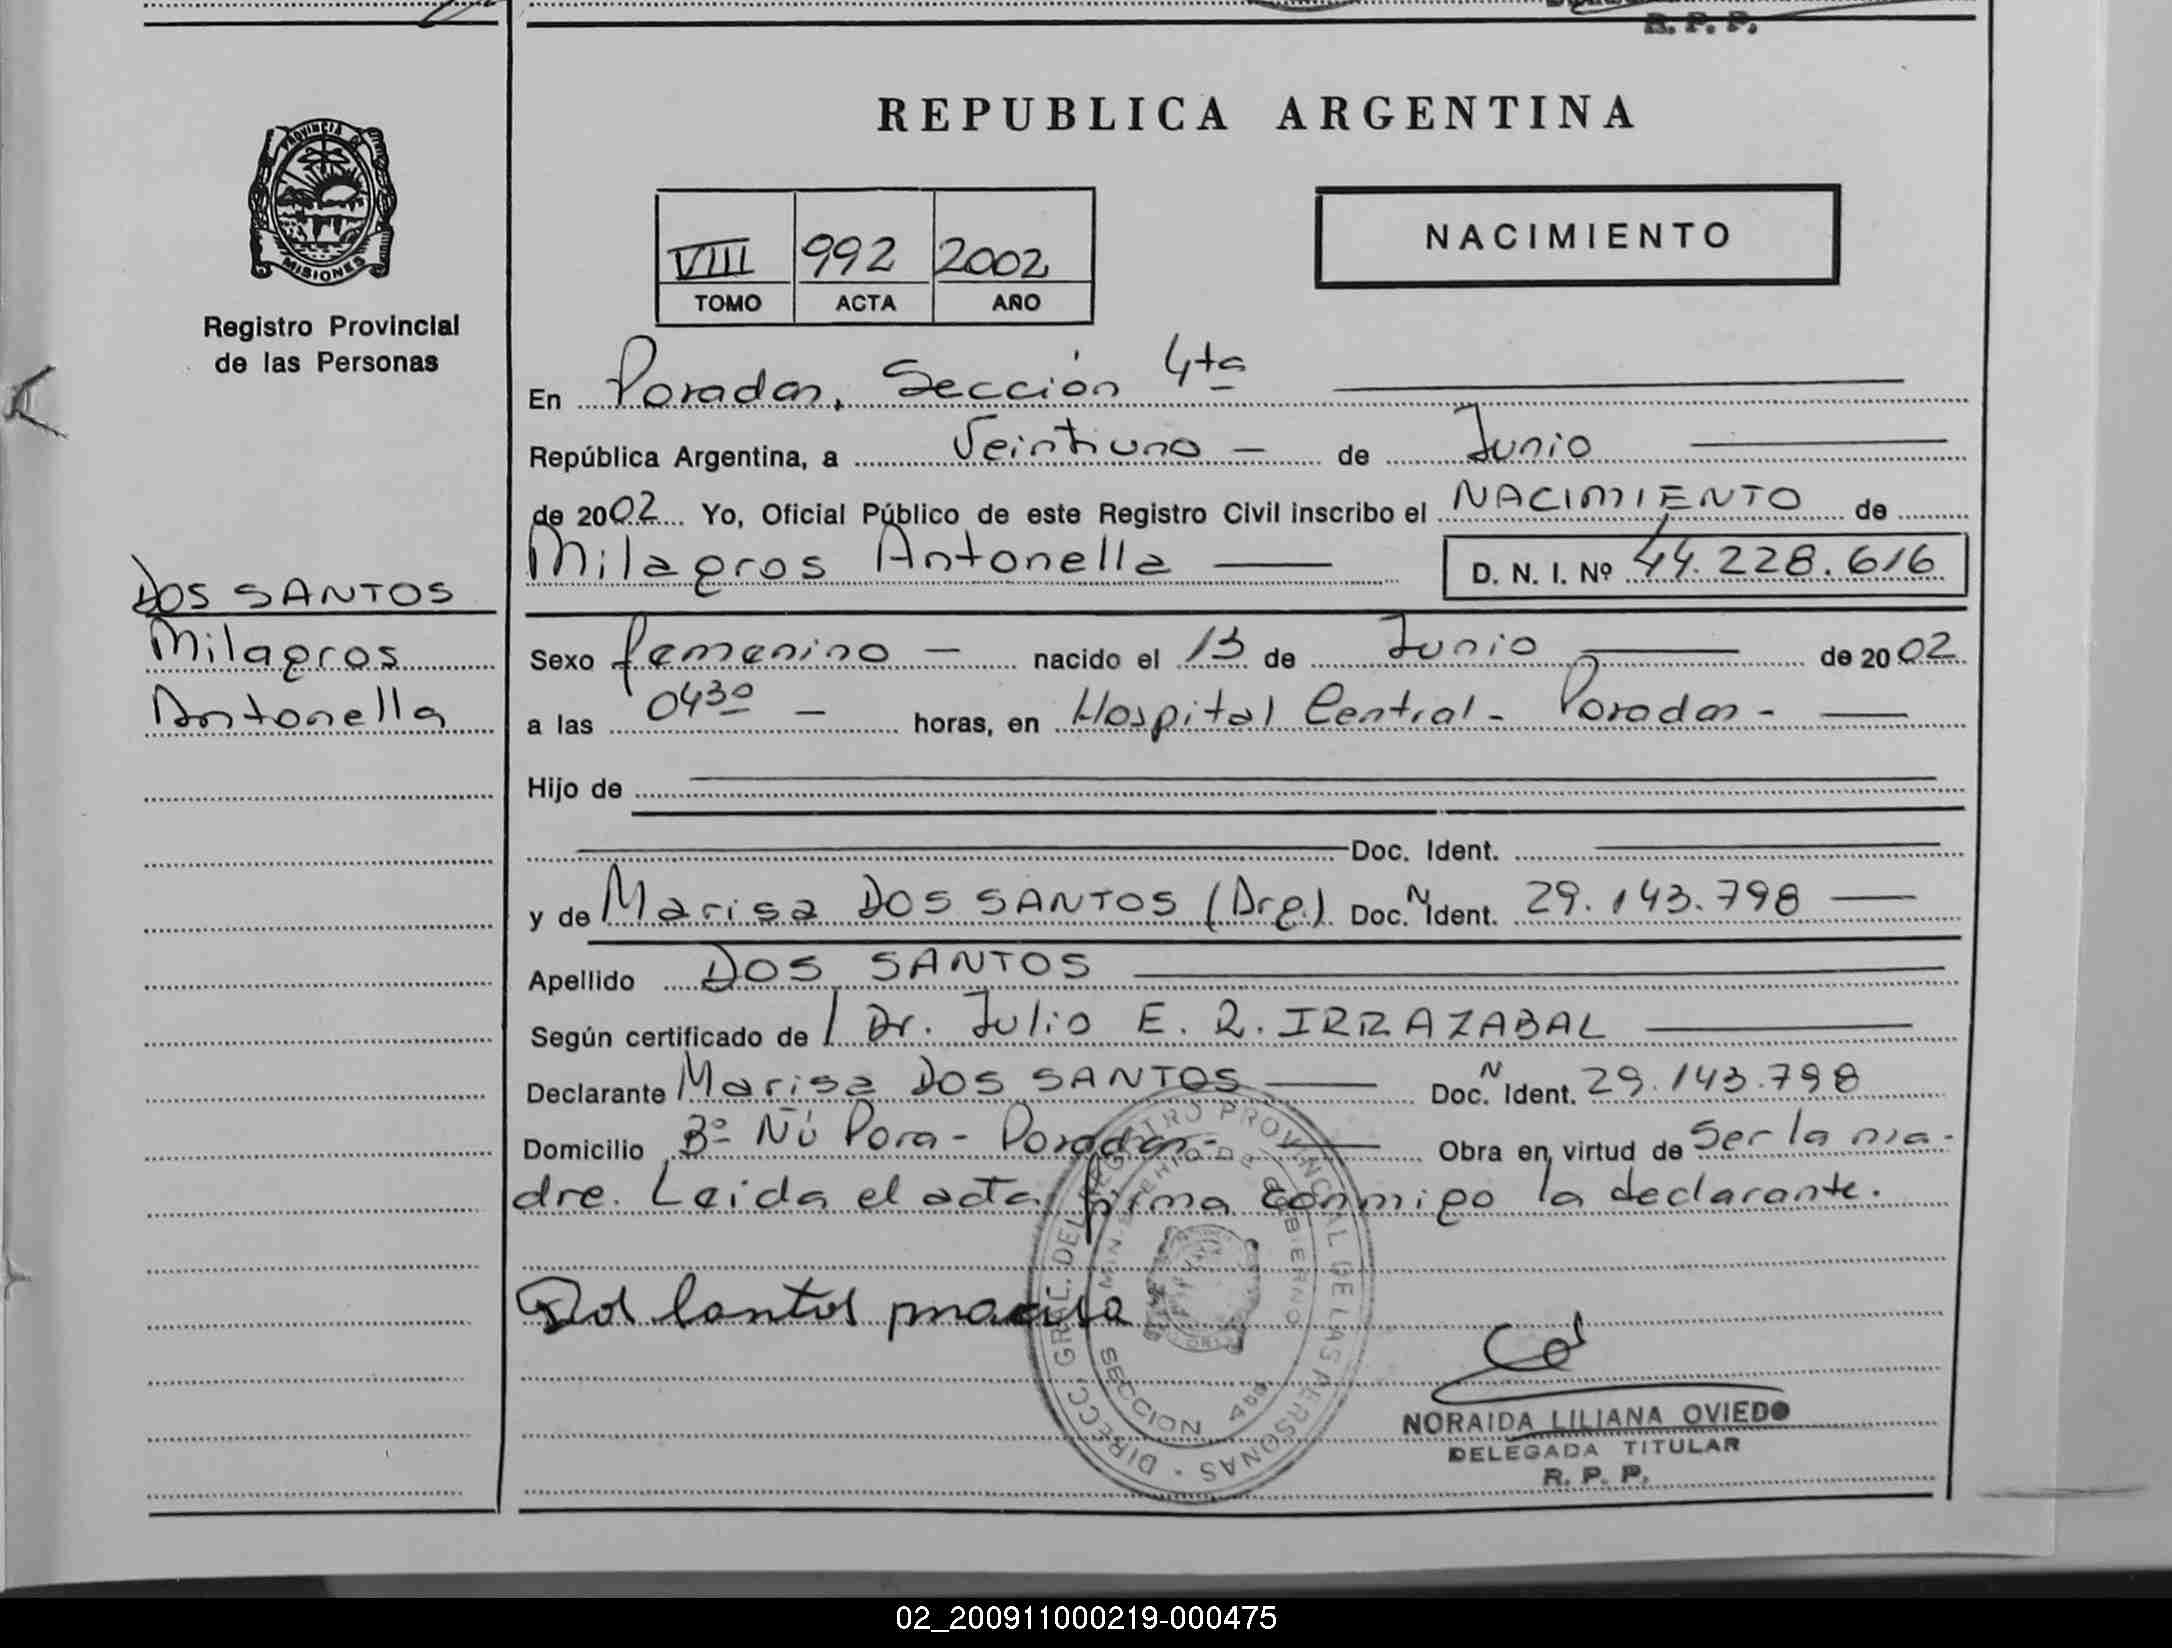 R. P. P.
REPUBLICA ARGENTINA
PROVINCIA DE
MISIONES
Registro Provincial
de las Personas
NACIMIENTO
VIII 992 2002
TOMO ACTA AÑO
En Posadas, Sección 4ta
República Argentina, a Veintiuno — de Junio
de 2002 Yo, Oficial Público de este Registro Civil inscribo el NACIMIENTO de
Milagros Antonella — D. N. I. Nº 44.228.616
DOS SANTOS
Milagros
Antonella
Sexo femenino — nacido el 13 de Junio — de 2002
a las 0430 — horas, en Hospital Central - Posadas - —
Hijo de
Doc. Ident.
y de Marisa DOS SANTOS (Arg.) Doc. N Ident. 29.143.798 —
Apellido DOS SANTOS
Según certificado de / Dr. Julio E. R. IRRAZABAL
Declarante Marisa DOS SANTOS — Doc. N Ident. 29.143.798
Domicilio Bº Ñú Pora - Posadas - — Obra en virtud de Ser la ma-
dre. Leida el acta, firma conmigo la declarante.
Dos Santos Marisa
DIRECC. GRAL. DEL REGISTRO PROVINCIAL DE LAS PERSONAS
MINISTERIO DE GOBIERNO
SECCION 4ta
NORAIDA LILIANA OVIEDO
DELEGADA TITULAR
R. P. P.
02_200911000219-000475